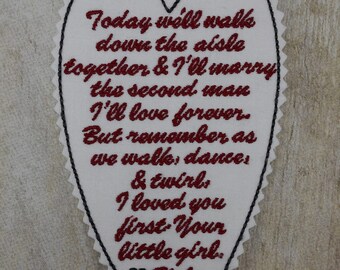 Today we'll walk
down the aisle
together & I'll marry
the second man
I'll love forever.
But remember as
we walk, dance,
& twirl,
I loved you
first. Your
little girl.